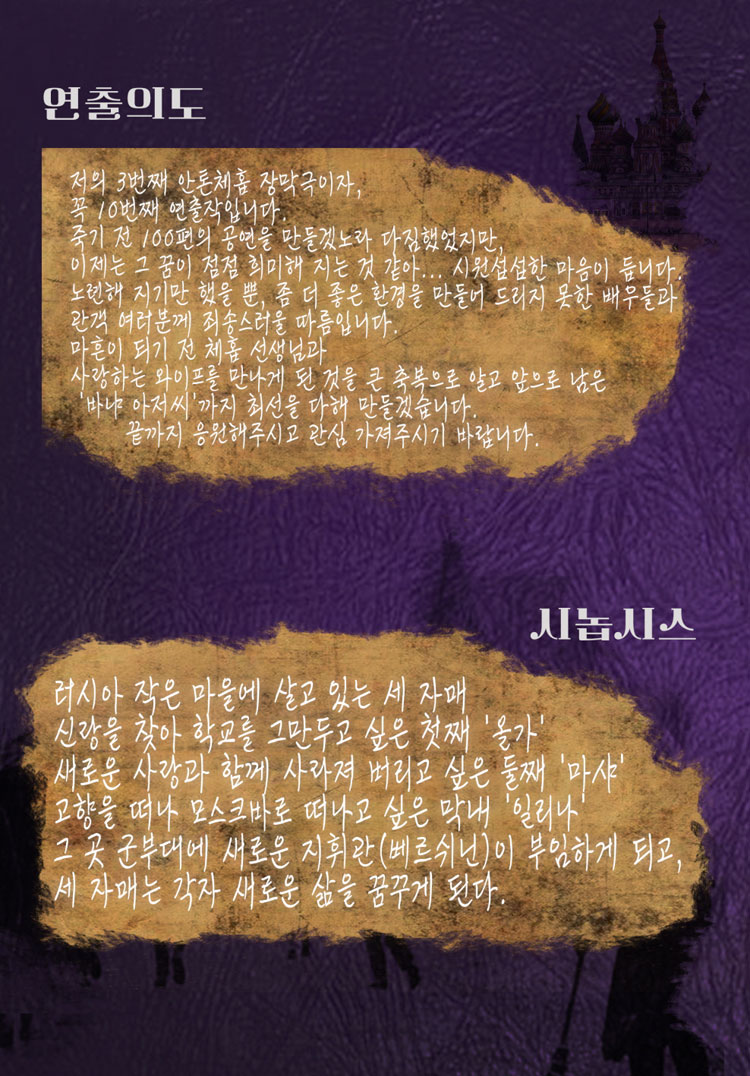 연출의도
저의 3번째 안톤체홉 장막극이자,
꼭 10번째 연출작입니다.
죽기 전 100편의 공연을 만들겠노라 다짐했었지만,
이제는 그 꿈이 점점 희미해 지는 것 같아... 시원섭섭한 마음이 듭니다.
노련해 지기만 했을 뿐, 좀 더 좋은 환경을 만들어 드리지 못한 배우들과
관객 여러분께 죄송스러울 따름입니다.
마흔이 되기 전 체홉 선생님과
사랑하는 와이프를 만나게 된 것을 큰 축복으로 알고 앞으로 남은
'바냐 아저씨'까지 최선을 다해 만들겠습니다.
끝까지 응원해주시고 관심 가져주시기 바랍니다.
시놉시스
러시아 작은 마을에 살고 있는 세 자매
신랑을 찾아 학교를 그만두고 싶은 첫째 '올가'
새로운 사랑과 함께 사라져 버리고 싶은 둘째 '마샤'
고향을 떠나 모스크바로 떠나고 싶은 막내 '일리나'
그 곳 군부대에 새로운 지휘관(베르쉬닌)이 부임하게 되고,
세 자매는 각자 새로운 삶을 꿈꾸게 된다.